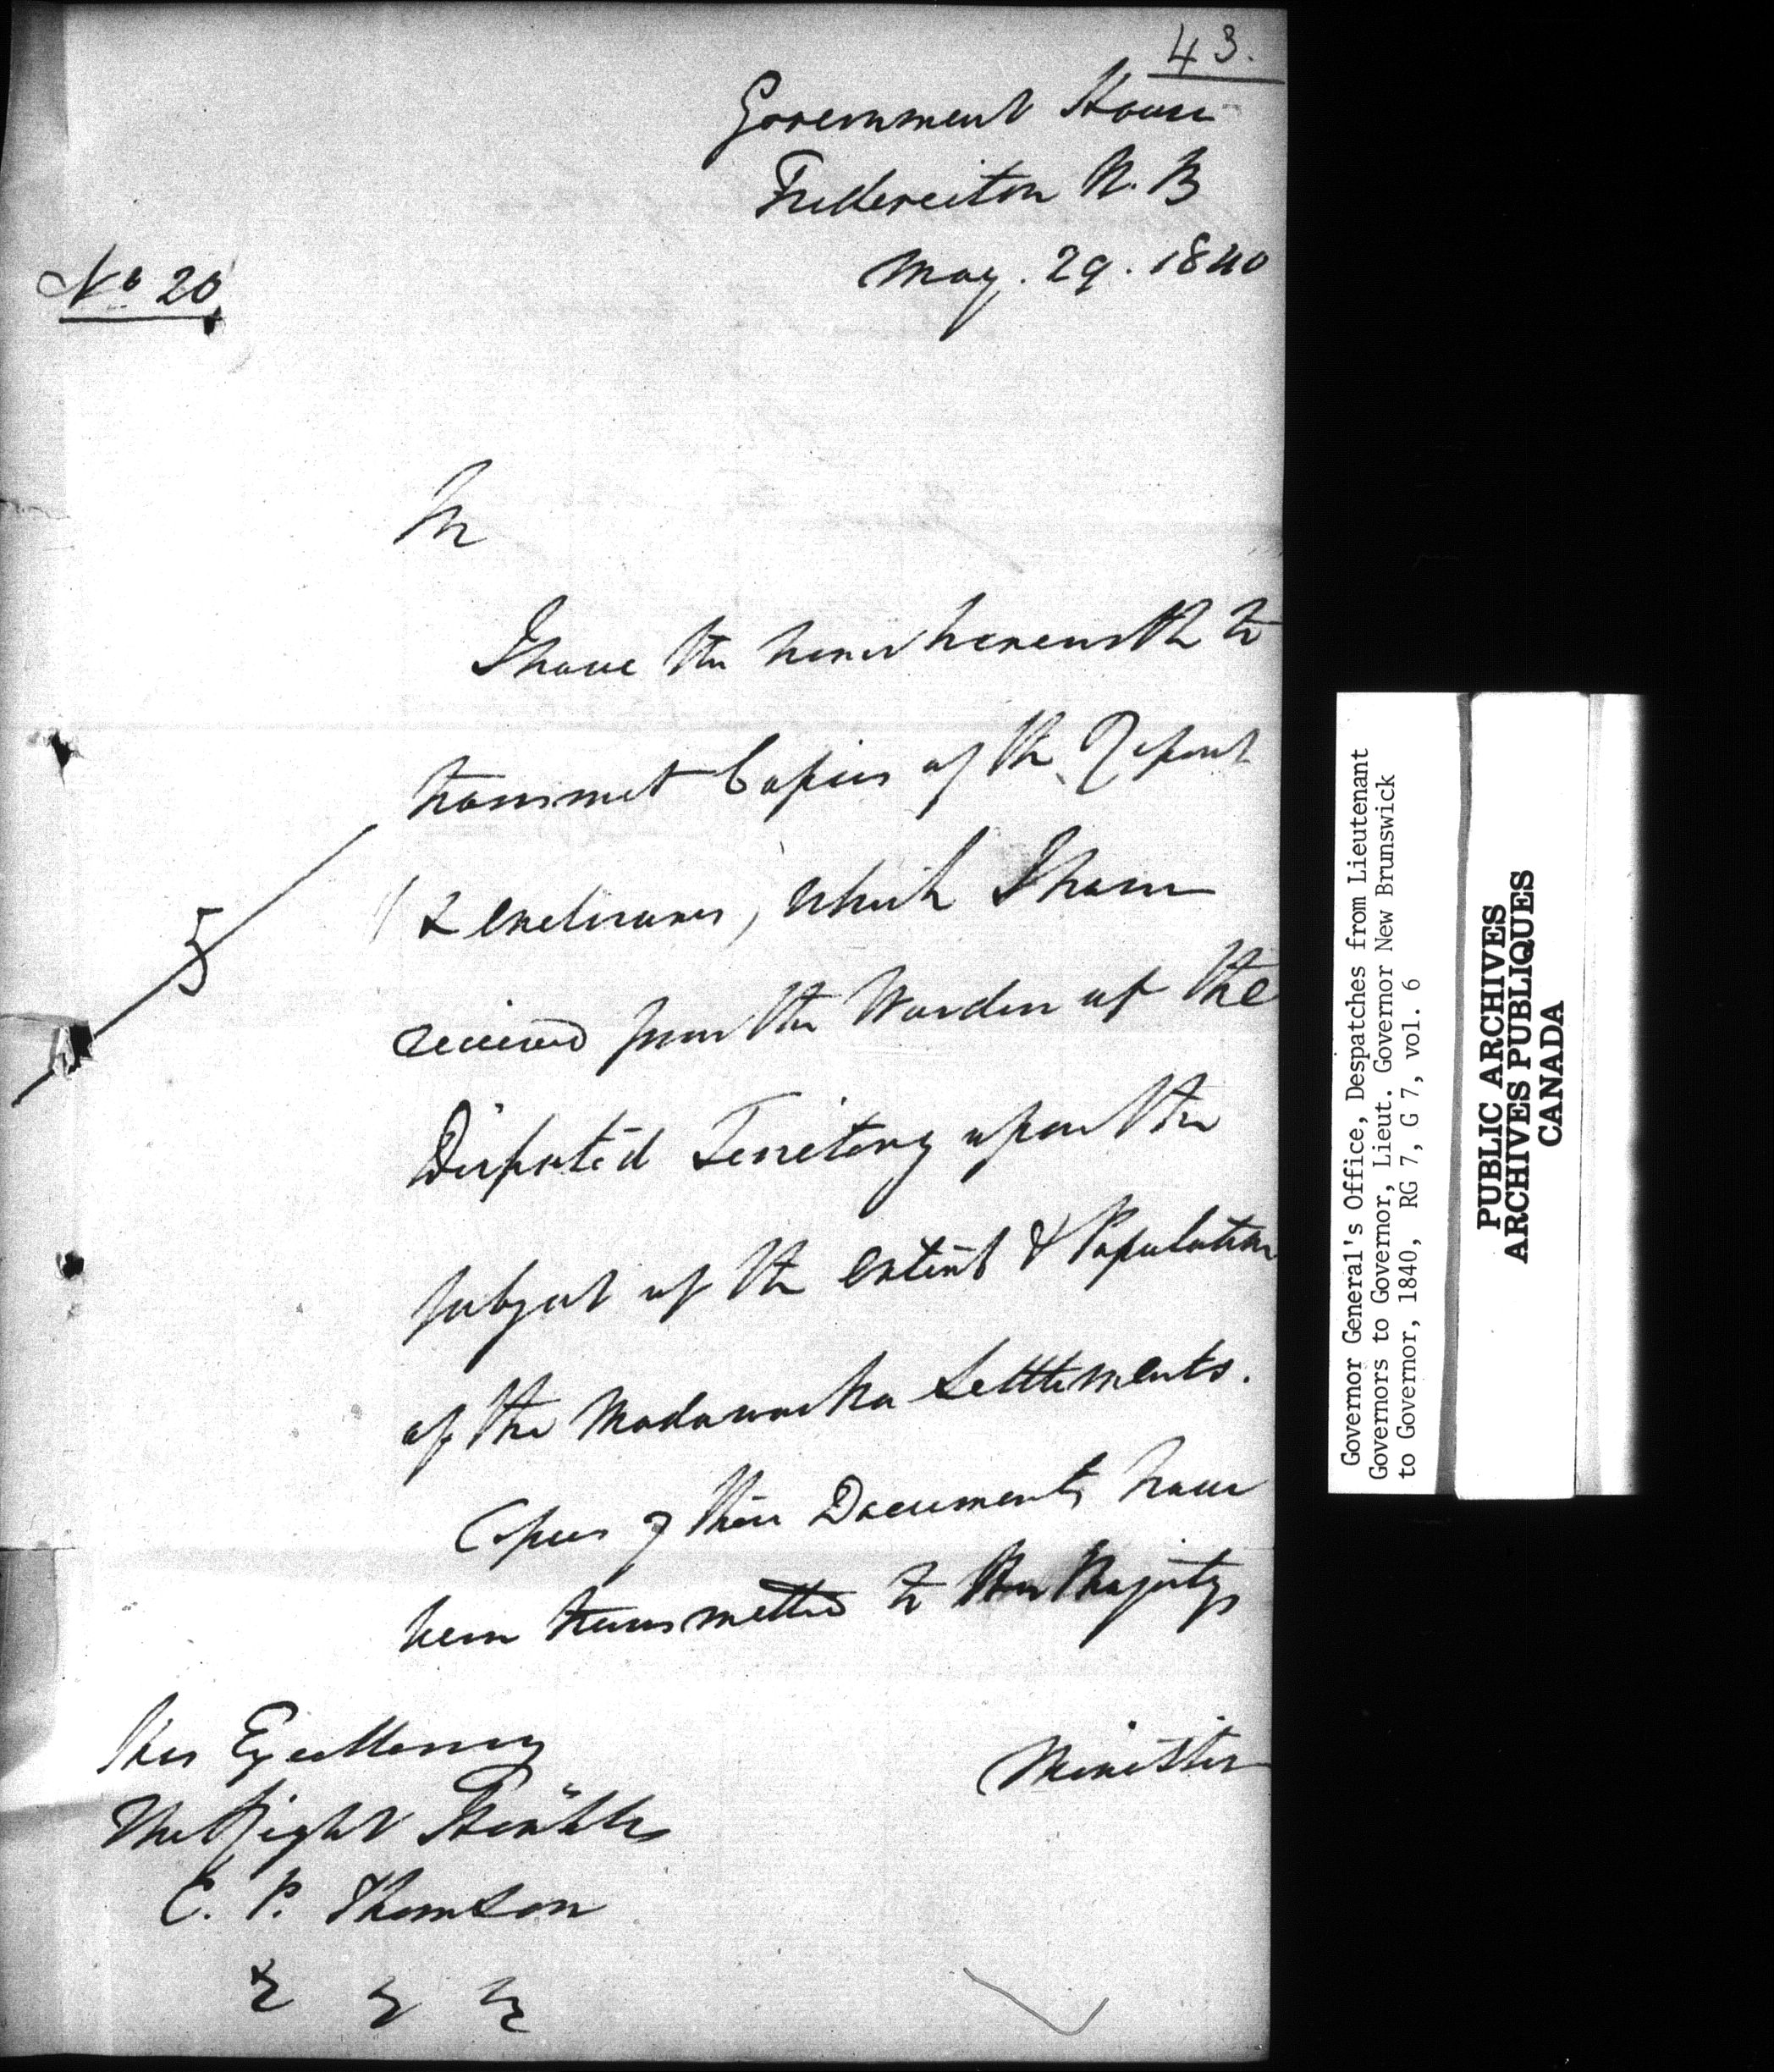 43.
Government House
Fredericton N. B
May. 29. 1840
No 20
Sir
I have the honor herewith to
transmit Copies of the Report
(& enclosures) which I have
5
received from the Warden of the
Disputed Territory upon the
subject of the extent & Population
of the Madawaska Settlements.
Copies of these Documents have
been transmitted to Her Majestys
Minister
His Excellency
The Right Honble
C. P. Thomson
Governor General's Office, Despatches from Lieutenant
Governors to Governor, Lieut. Governor New Brunswick
to Governor, 1840, RG 7, G 7, vol. 6
PUBLIC ARCHIVES
ARCHIVES PUBLIQUES
CANADA